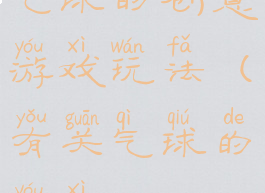 气球的创意
yóu xì wán fǎ
游戏玩法（
yǒu guān qì qiú de
有关气球的
yóu xì